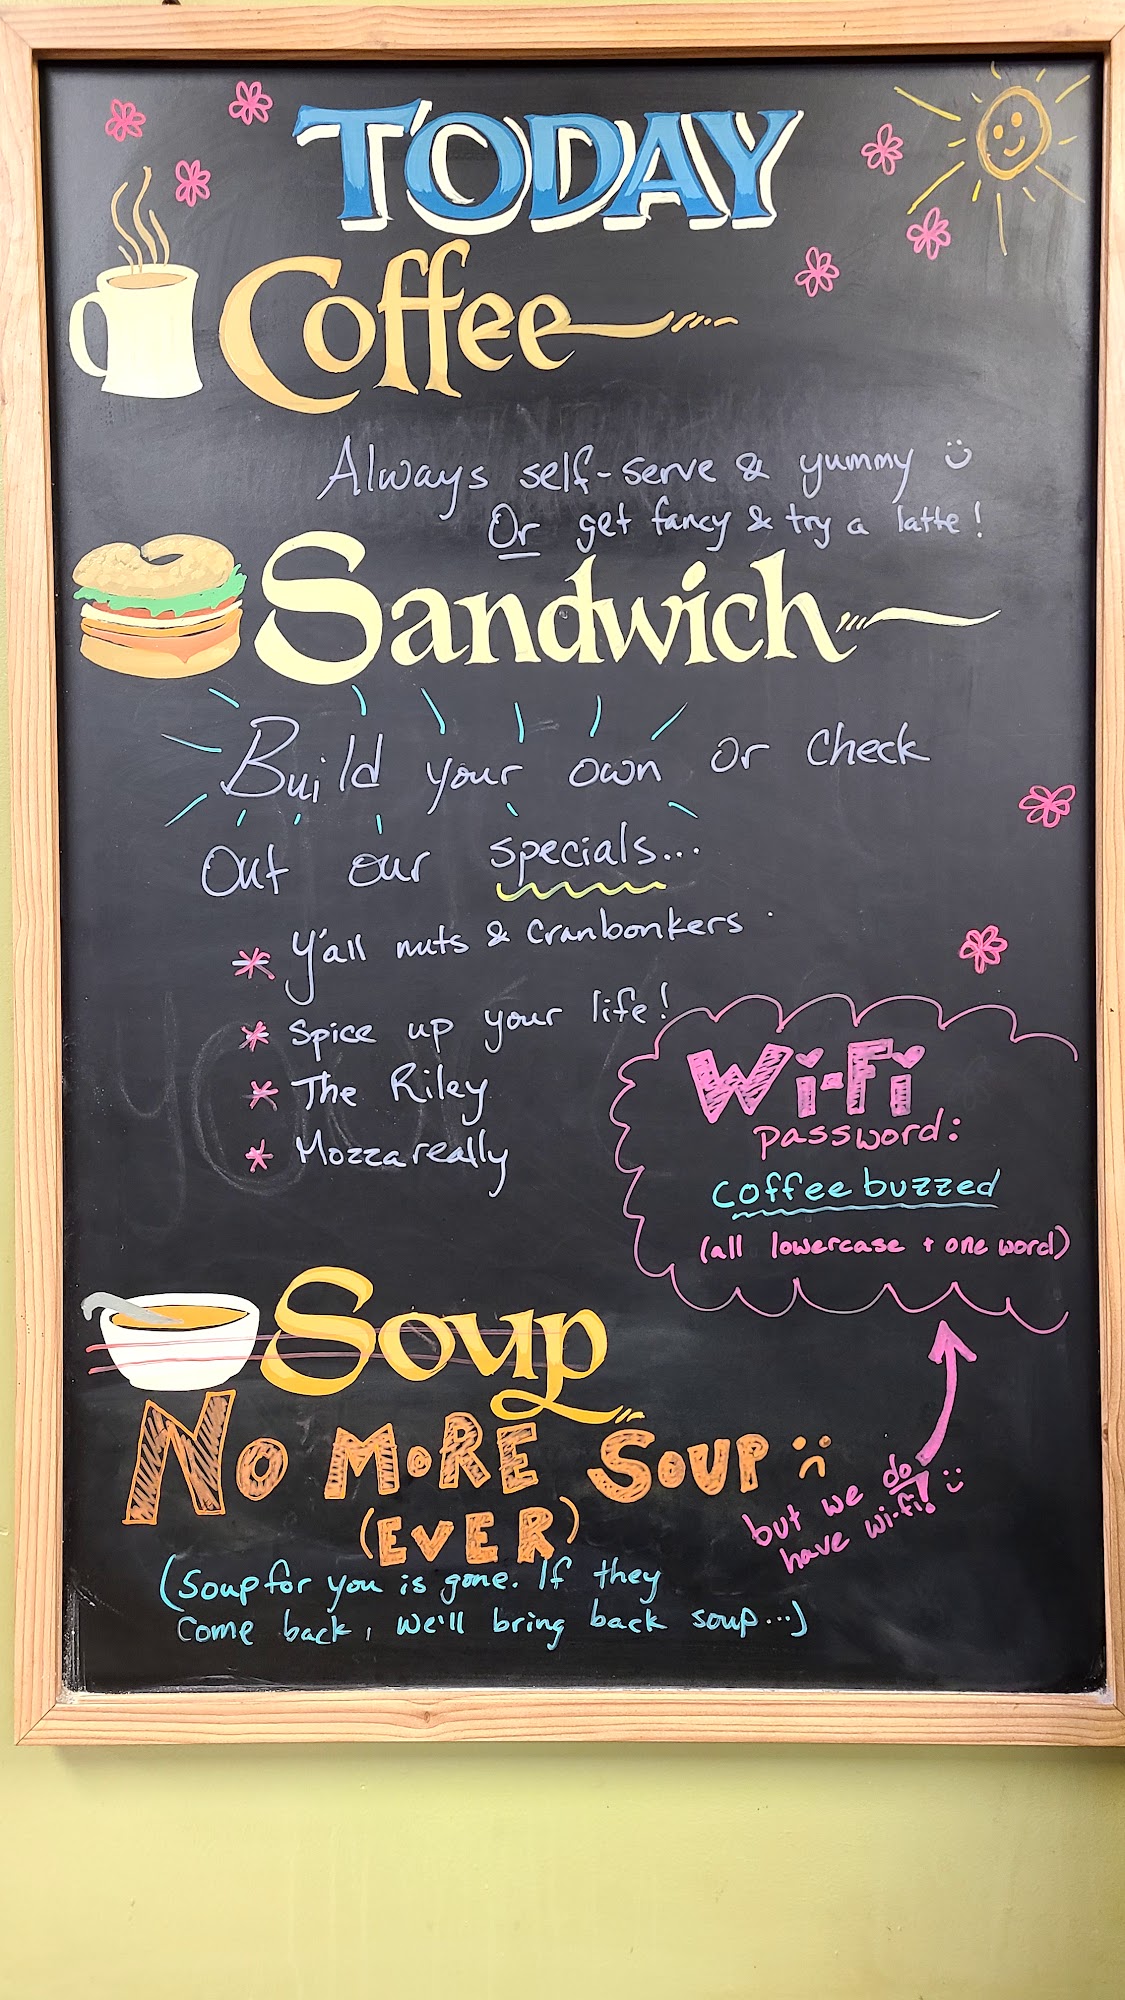 TODAY
Coffee
Always self-serve & yummy
Or get fancy & try a latte!
Sandwich
Build your own or check
Out our specials...
* Y'all nuts & Cranbonkers
* Spice up your life!
* The Riley
* Mozzareally
Wi-Fi
password:
coffeebuzzed
(all lowercase + one word)
Soup
NO MORE SOUP :(
(EVER)
(Soup for you is gone. If they
Come back, we'll bring back soup...)
but we do
have wi-fi! :)